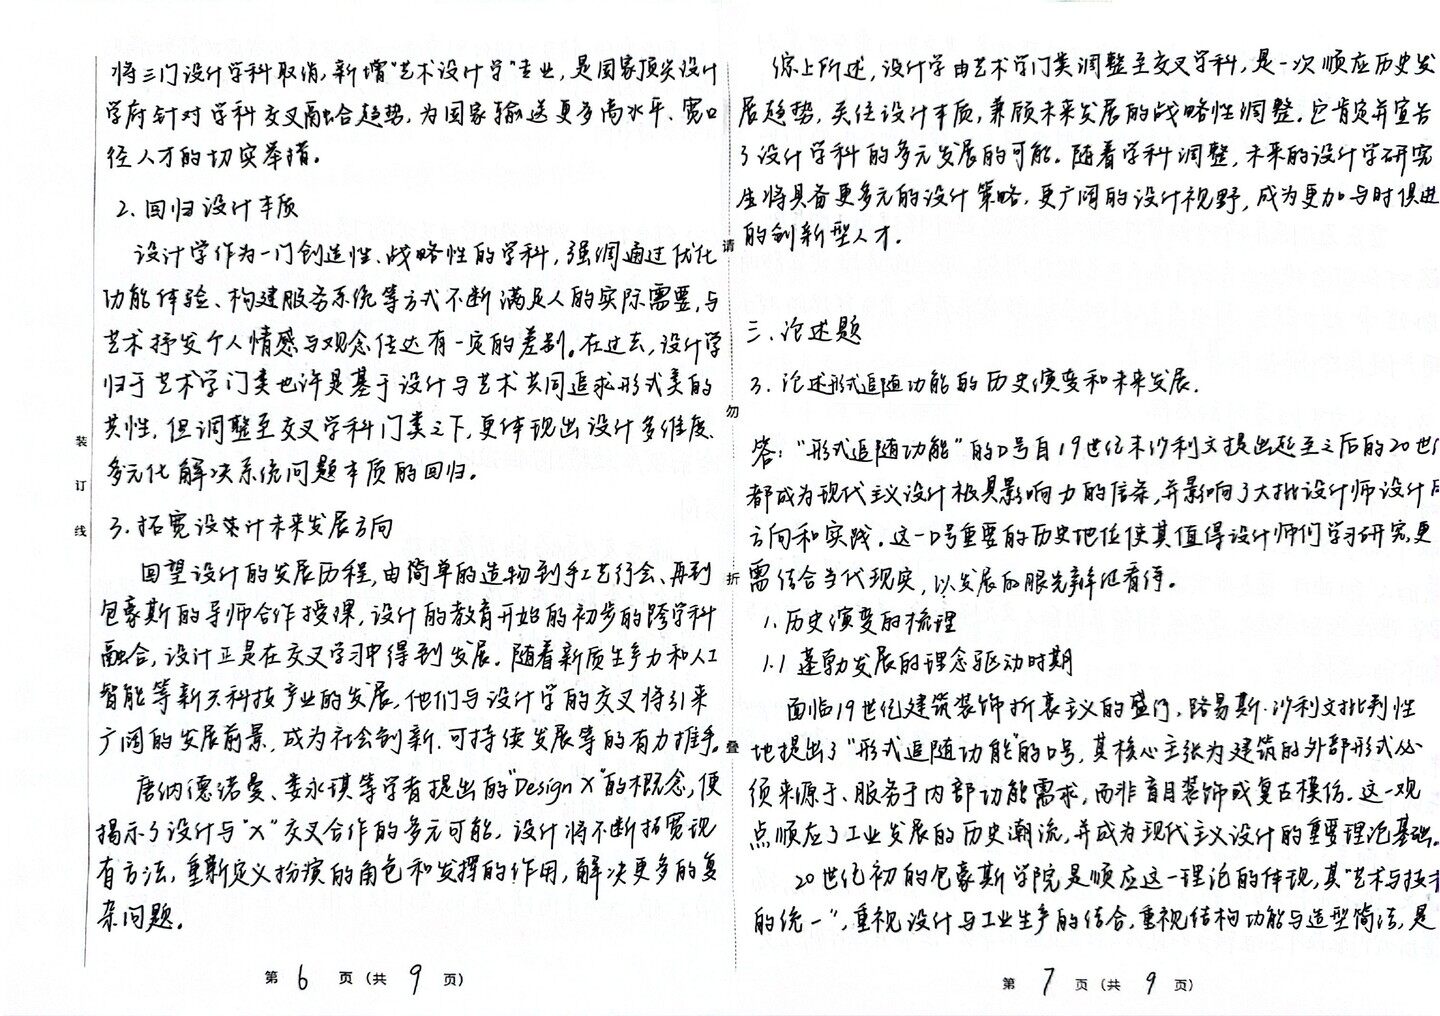 将三门设计学科取消，新增“艺术设计学”专业，是国家顶尖设计
学府针对学科交叉融合趋势，为国家输送更多高水平、宽口
径人才的切实举措。
2. 回归设计本质
设计学作为一门创造性、战略性的学科，强调通过优化
功能体验、构建服务系统等方式不断满足人的实际需要，与
艺术抒发个人情感与观念传达有一定的差别。在过去，设计学
归于艺术学门类也许是基于设计与艺术共同追求形式美的
共性，但调整至交叉学科门类之下，更体现出设计多维度、
多元化解决系统问题本质的回归。
3. 拓宽设计未来发展方向
回望设计的发展历程，由简单的造物到手工艺行会、再到
包豪斯的导师合作授课，设计的教育开始的初步的跨学科
融合，设计正是在交叉学习中得到发展。随着新质生产力和人工
智能等新兴科技产业的发展，他们与设计学的交叉将引来
广阔的发展前景，成为社会创新、可持续发展等的有力推手。
唐纳德诺曼、娄永琪等学者提出的“Design X”的概念，便
揭示了设计与“X”交叉合作的多元可能，设计将不断拓宽现
有方法，重新定义扮演的角色和发挥的作用，解决更多的复
杂问题。
第 6 页（共 9 页）
装
订
线
请
勿
折
叠
综上所述，设计学由艺术学门类调整至交叉学科，是一次顺应历史发
展趋势，关注设计本质，兼顾未来发展的战略性调整。它肯定并宣告
了设计学科的多元发展的可能。随着学科调整，未来的设计学研究
生将具备更多元的设计策略，更广阔的设计视野，成为更加与时俱进
的创新型人才。
三、论述题
3. 论述形式追随功能的历史演变和未来发展.
答：“形式追随功能”的口号自19世纪末沙利文提出起至之后的20世
都成为现代主义设计极具影响力的信条，并影响了大批设计师设计
方向和实践。这一口号重要的历史地位使其值得设计师们学习研究，更
需结合当代现实，以发展的眼光辩证看待。
1. 历史演变的梳理
1.1 蓬勃发展的理念驱动时期
面临19世纪建筑装饰折衷主义的盛行，路易斯·沙利文批判性
地提出了“形式追随功能”的口号，其核心主张为建筑的外部形式必
须来源于、服务于内部功能需求，而非盲目装饰或复古模仿。这一观
点顺应了工业发展的历史潮流，并成为现代主义设计的重要理论基础。
20世纪初的包豪斯学院是顺应这一理论的体现，其“艺术与技术
的统一”，重视设计与工业生产的结合，重视结构功能与造型简洁，是
第 7 页（共 9 页）